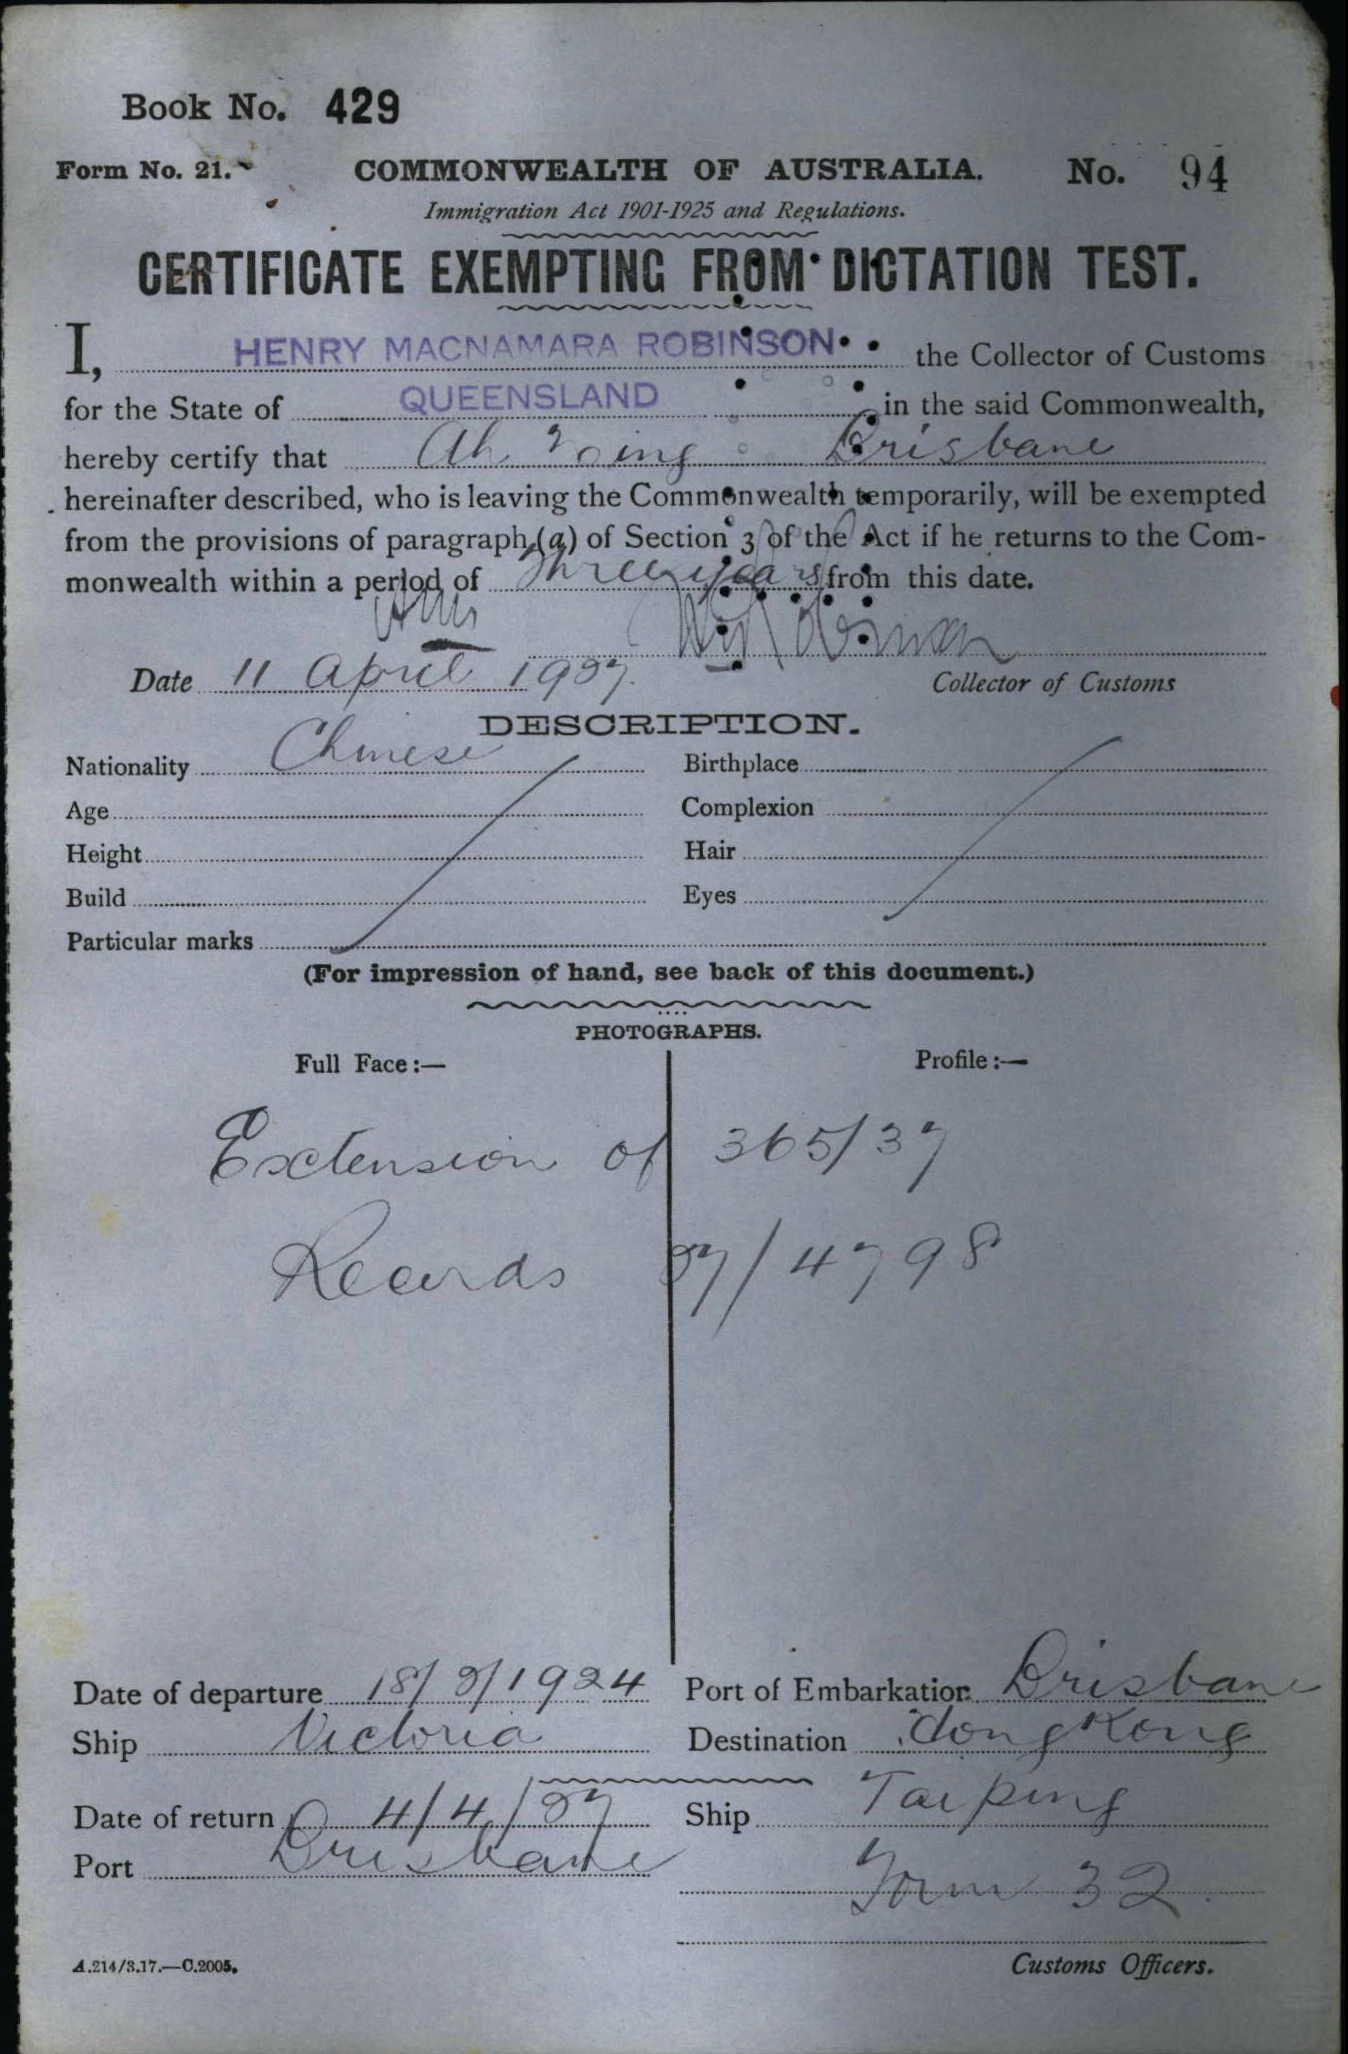 Book No. 429
Form No. 21. COMMONWEALTH OF AUSTRALIA. No. 94
Immigration Act 1901-1925 and Regulations.
CERTIFICATE EXEMPTING FROM DICTATION TEST.
I, HENRY MACNAMARA ROBINSON the Collector of Customs
for the State of QUEENSLAND in the said Commonwealth,
hereby certify that Ah Brisbane
hereinafter described, who is leaving the Commonwealth temporarily, will be exempted
from the provisions of paragraph (a) of Section 3 of the Act if he returns to the Com-
monwealth within a period of Three years from this date.
Date 11 April 1927. Collector of Customs
DESCRIPTION.
Nationality Chinese Birthplace
Age Complexion
Height Hair
Build Eyes
Particular marks
(For impression of hand, see back of this document.)
PHOTOGRAPHS.
Full Face:— Profile:—
Extension of 365/37
Records 27/4798
Date of departure 18/3/1924 Port of Embarkation Brisbane
Ship Victoria Destination Hong Kong
Date of return 4/4/27 Ship Taiping
Port Brisbane Form 32
A.214/3.17.—C.2005. Customs Officers.